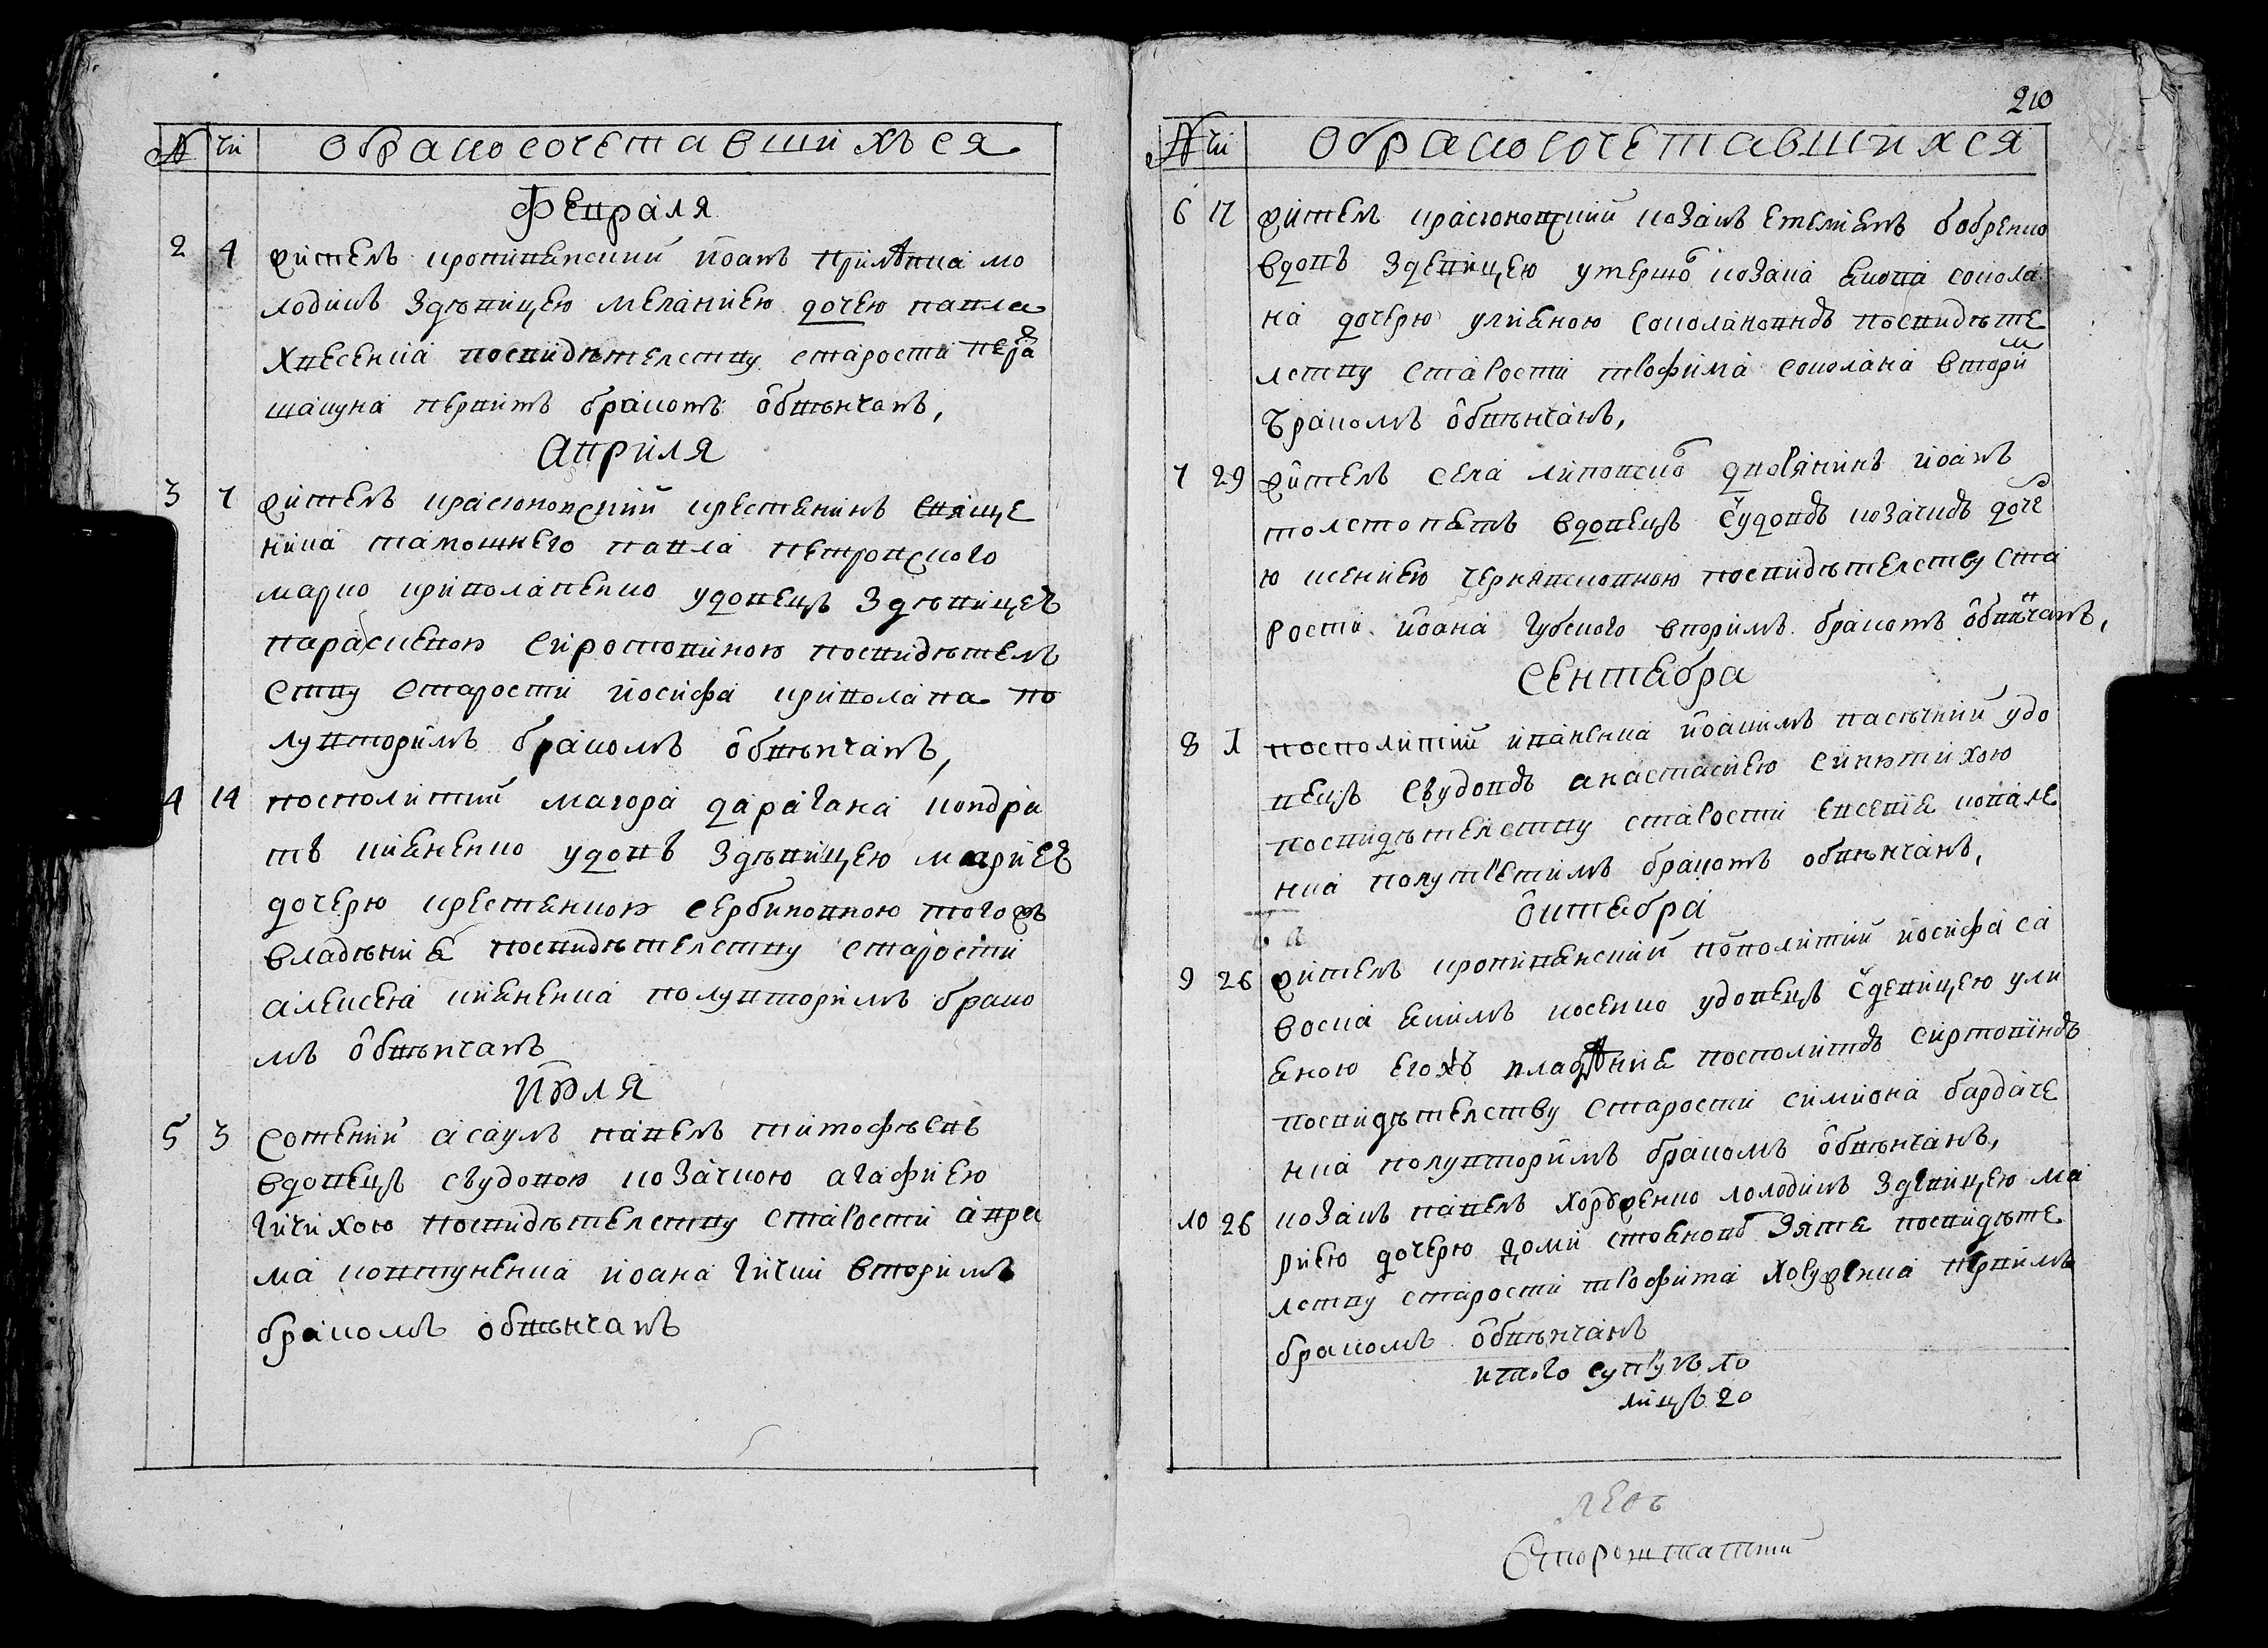 № чи о бракосочетавшихъся
Февраля
2 4 житель кропивенский Иоанъ мо
лодикъ здѣвицею Меланиею дочею павла
посвидѣтелству старости
первимъ бракомъ обвѣнчанъ,
Априля
3 7 житель красиоковский крестянинъ свяще
ника тамошнего павла петровского
марко криволапенко удовецъ здѣвицею
параскевою сиротовиною посвидѣтель
ству старости иосифа криволапа по
лувторимъ бракомъ обвѣнчанъ,
4 14 посполитий маиора дарагана кондра
тъ кияненко удовъ здѣвицею мариею
дочерю крестянкою сербиновною тогожъ
владѣния посвидѣтелству старости
алексея кияненка полувторимъ брако
мъ обвѣнчанъ
Июля
5 3 сотений асаулъ павелъ тимофѣевъ
вдовецъ свдовою козачкою агафиею
гичихою посвидѣтелству старости авра
ма ковтуненка иоана гички вторимъ
бракомъ обвѣнчанъ
210
№ чи о бракосочетавшихся
6 17 житель красиоковский козакъ емелянъ бобренко
вдовъ здевицею умершо козака якова сокола
на дочерю улияною соколановнъ посвидѣте
лству старости трофима соколана втори
бракомъ обвѣнчанъ,
7 29 житель села липовско дворянинъ иоанъ
толстопятъ вдовецъ судовъ козачкъ доче
ю ксениею чернявсковною посвидѣтелству ста
рости иоана губского вторимъ бракомъ обвѣнчанъ,
Сентебра
8 1 посполитий иваненка иоакимъ пасѣчний удо
вецъ свудовъ анастасиею синютихою
посвидѣтелству старости евсевия ковале
нка полутретимъ бракомъ обвѣнчанъ,
Октебра
9 26 житель кропивенский посполитий иосифа са
воска якимъ косенко удовецъ сдевицею ули
яною егожъ владѣния посполитъ сиротовинъ
посвидѣтелству старости симиона бардаче
нка полувторимъ бракомъ обвѣнчанъ,
10 26 козакъ павелъ хорженко молодикъ здѣвицею ма
риею дочерю доми стояново зятя посвидѣте
лству старости трофима первимъ
бракомъ обвѣнчанъ
итого супругъ 10
лицъ 20
левъ